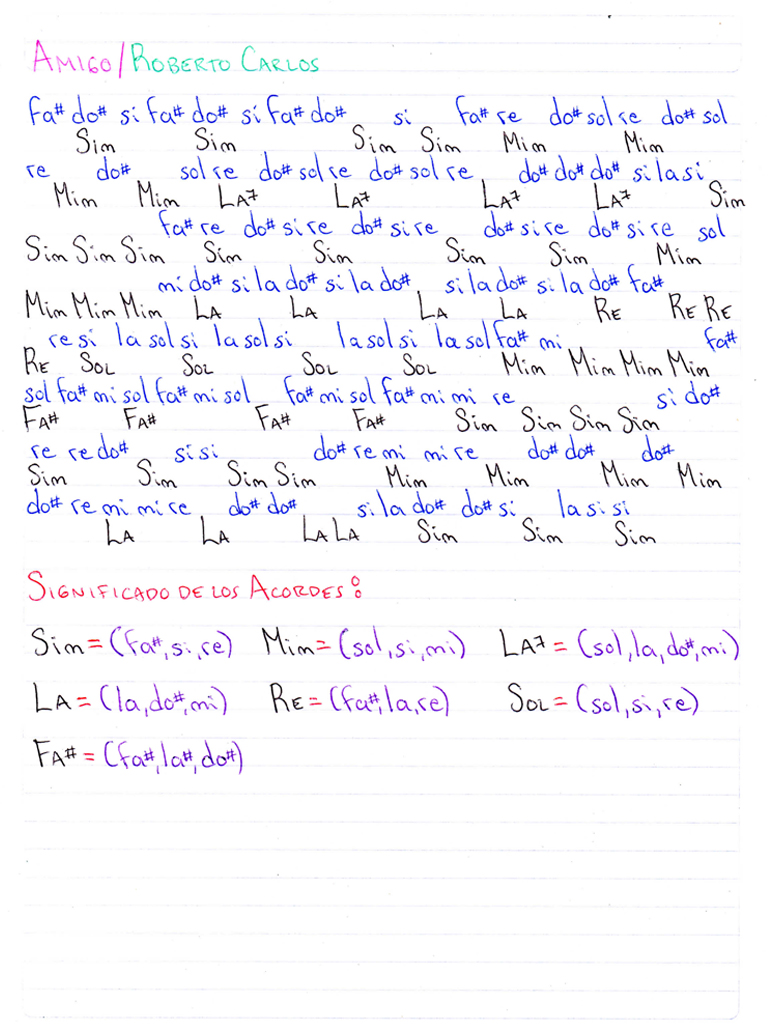 AMIGO/ROBERTO CARLOS
fa# do# si fa# do# si fa# do# si fa# re do# sol re do# sol
Sim Sim Sim Sim Mim Mim
re do# sol re do# sol re do# sol re do# do# do# si la si
Mim Mim LA7 LA7 LA7 LA7 Sim
fa# re do# si re do# si re do# si re do# si re sol
Sim Sim Sim Sim Sim Sim Sim Mim
mi do# si la do# si la do# si la do# si la do# fa#
Mim Mim Mim LA LA LA LA RE RE RE
re si la sol si la sol si la sol si la sol fa# mi fa#
RE SOL SOL SOL SOL Mim Mim Mim Mim
sol fa# mi sol fa# mi sol fa# mi sol fa# mi mi re si do#
FA# FA# FA# FA# Sim Sim Sim Sim
re re do# si si do# re mi mi re do# do# do#
Sim Sim Sim Sim Mim Mim Mim Mim
do# re mi mi re do# do# si la do# do# si la si si
LA LA LA LA Sim Sim Sim
SIGNIFICADO DE LOS ACORDES:
Sim = (fa#, si, re) Mim = (sol, si, mi) LA7 = (sol, la, do#, mi)
LA = (la, do#, mi) RE = (fa#, la, re) SOL = (sol, si, re)
FA# = (fa#, la#, do#)